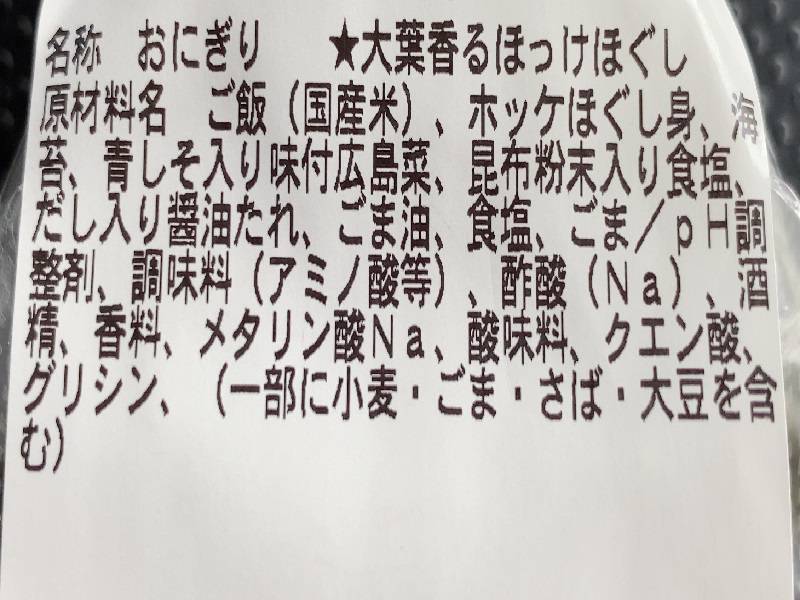 名称　おにぎり　　★大葉香るほっけほぐし
原材料名　ご飯（国産米）、ホッケほぐし身、海
苔、青しそ入り味付広島菜、昆布粉末入り食塩、
だし入り醤油たれ、ごま油、食塩、ごま／ｐＨ調
整剤、調味料（アミノ酸等）、酢酸（Ｎａ）、酒
精、香料、メタリン酸Ｎａ、酸味料、クエン酸、
グリシン、（一部に小麦・ごま・さば・大豆を含
む）